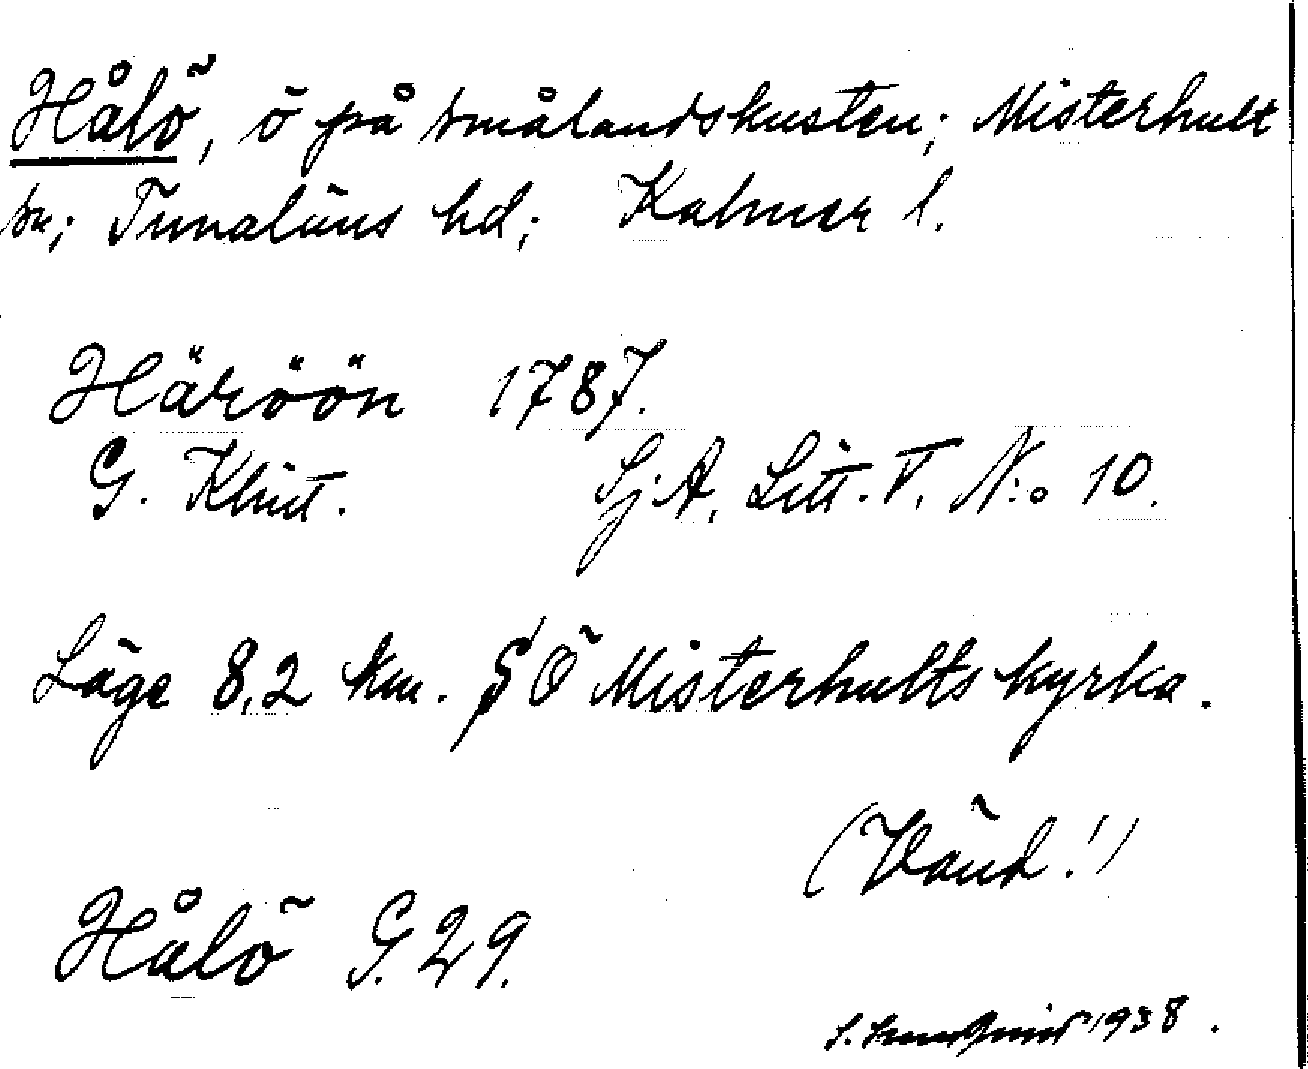 Hålö, ö på Smålandskusten; Misterhult
sn; Tunaläns hd; Kalmar l.
Häröön 1787.
G. Klint. Sj.A. Litt. V. N:o 10.
Läge 8,2 km. SÖ Misterhults kyrka.
(Vänd!)
Hålö G. 29.
1938.